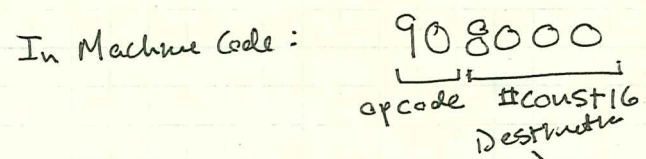 In Machine Code: 908000
opcode #const16
Destination